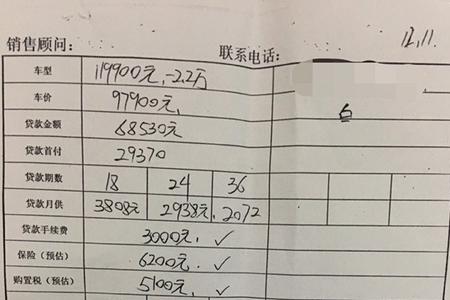 12.11.
销售顾问： 联系电话：
车型 119900元,-2.2万
车价 97900元,
贷款金额 68530元
贷款首付 29370
贷款期数 18 24 36
贷款月供 3808元 2938元, 2072
贷款手续费 3000元, ✓
保险（预估） 6200元. ✓
购置税（预估） 5100元, ✓